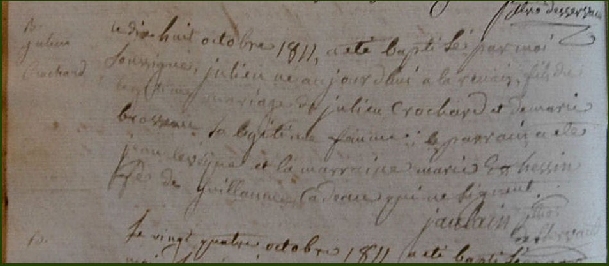 ptre desservant
B.
julien
Crochard
Le dix huit octobre 1811, a été baptisé par moi
soussigné, julien né aujourd'hui a la fils du
légitime mariage de julien Crochard et de marie
brosseau sa légitime femme ; le parrain a été
jean levêque et la marraine marie hessin
fe de guillaume Cadeau qui ne signent.
jaulain ptre
desservant
B.
Le vingt quatre octobre 1811 a été baptisé